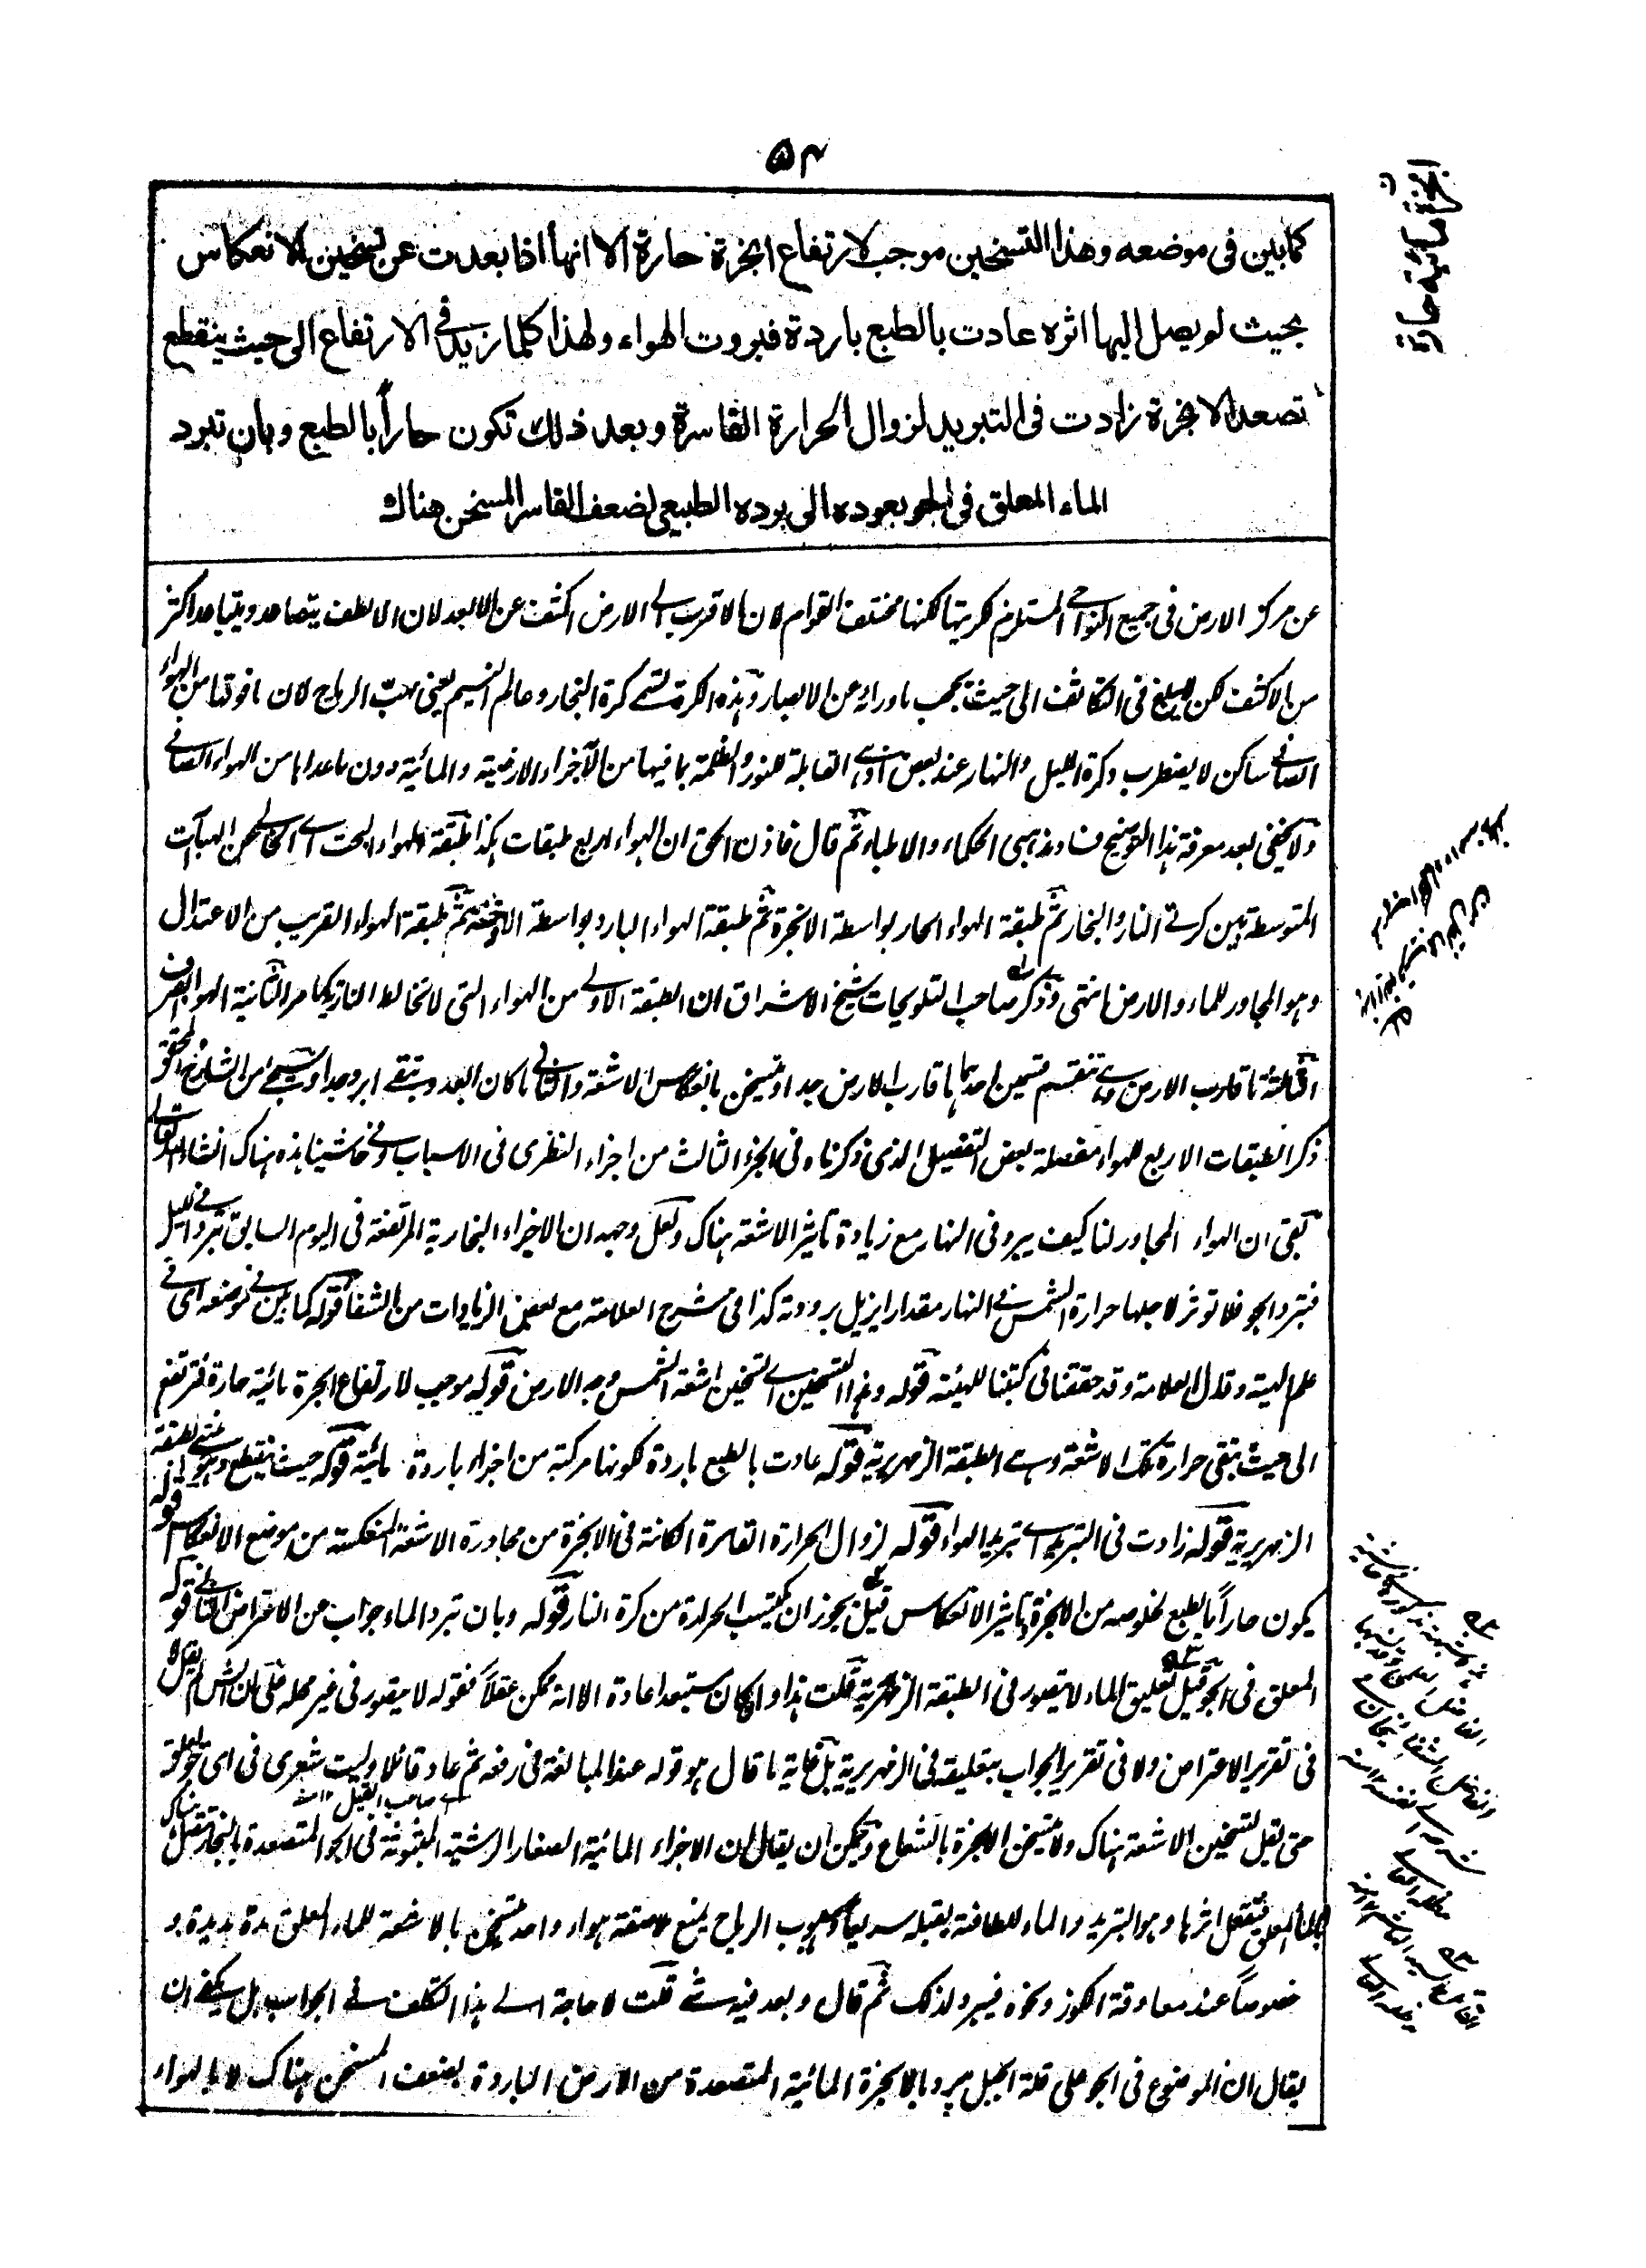 ٥٤
كما بين فى موضعه وهذا التسخين موجب لارتفاع ابخرة حارة الا انها اذا بعدت عن تسخين الانعكاس
بحيث لم يصل اليها اثره عادت بالطبع باردة فبردت الهواء ولهذا كلما زيد فى الارتفاع الى حيث ينقطع
تصعد الابخرة زادت فى التبريد لزوال الحرارة القاسرة وبعد ذلك تكون حاراً بالطبع وبان تبرد
الماء المعلق فى الجو بعوده الى برده الطبيعى لضعف القاسر المسخن هناك
عن مركز الارض فى جميع النواحى المستلزم كريتها لكنها مختلف القوام لان الاقرب الى الارض اكثف عن الابعد لان الالطف يتصاعد ويتباعد اكثر
من الاكثف لكن لا يبلغ فى التكاثف الى حيث يحجب ماوراءه عن الابصار وهذه الكرة تسمى كرة البخار وعالم النسيم يعنى مهب الرياح لان ما فوقها من الهواء
الصافى ساكن لا يضطرب وكرة الليل والنهار عند بعض اذ هى القابلة للنور والظلمة بما فيها من الاجزاء الارضية والمائية دون ما عداها من الهواء الصافى
ولا يخفى بعد معرفة هذا التوضيح فساد مذهبى الحكماء والاطباء ثم قال فاذن الحق ان الهواء اربع طبقات هكذا طبقة الهواء البحت اى الخالص عن الهبآت
المتوسطة بين كرتى النار والبخار ثم طبقة الهواء الحار بواسطة الابخرة ثم طبقة الهواء البارد بواسطة الادخنة ثم طبقة الهواء القريب من الاعتدال
وهو المجاور للماء والارض انتهى وذكر صاحب التلويحات شيخ الاشراق ان الطبقة الاولى من الهواء التى لا تخالط النار كما مر الثانية الهواء الصرف
الثالثة ما قارب الارض وهى تنقسم قسمين احدهما ما قارب الارض جدا وتسخن بانعكاس الاشعة والثانى ما كان ابعد وبقى ابرد جدا وسيجئ من الشارح المحقق
ذكر الطبقات الاربع للهواء مفصلة بعض التفصيل الذى ذكرناه فى الجزء الثالث من اجزاء النظرى فى الاسباب وفى حاشيتنا هذه هناك انشاء الله تعالى
بقى ان الهواء المجاور لنا كيف يبرد فى النهار مع زيادة تاثير الاشعة هناك ولعل وجهه ان الاجزاء البخارية المرتفعة فى اليوم السابق تبرد فى الليل
فتبرد الجو فلا تؤثر لاجلها حرارة الشمس فى النهار مقدار ايزيل برودته كذا فى شرح العلامة مع بعض الزيادات من الشفا قوله كما بين فى موضعه اى فى
علم الهيئة وقال العلامة وقد حققنا فى كتبنا للهيئة قوله وهذا التسخين اى تسخين اشعة الشمس وجه الارض قوله موجب لارتفاع ابخرة مائية حارة فترتفع
الى حيث تبقى حرارة تلك الاشعة وهى الطبقة الزمهريرية قوله عادت بالطبع باردة لكونها مركبة من اجزاء باردة مائية قوله حيث ينقطع وهو منتهى الطبقة
الزمهريرية قوله زادت فى التبريد اى تبريد الهواء قوله لزوال الحرارة القاسرة الكائنة فى الابخرة من مجاورة الاشعة المنعكسة من موضع الانعكاس قوله
يكون حاراً بالطبع لخلوصه من الابخرة وتاثير الانعكاس قيل يجوز ان يكتسب الحرارة من كرة النار قوله وبان تبرد الماء جواب عن الاعتراض الثانى قوله
المعلق فى الجو قيل تعليق الماء لا يتصور فى الطبقة الزمهريرية قلت هذا وان كان مستبعدا عادة الا انه ممكن عقلاً فقوله لا يتصور فى غير محله على ان الشارح لم يقل
فى تقرير الاعتراض ولا فى تقرير الجواب بتعليقه فى الزمهريرية بل غاية ما قال هو قوله عند المبالغة فى رفعه ثم عاد قائلا وليت شعرى فى اى جو يعلق
اى صاحب القيل ١٢ منه
حتى يقبل تسخين الاشعة هناك ولا تسخن الابخرة بالشعاع ويمكن ان يقال ان الاجزاء المائية الصغار الرشية المبثوثة فى الجو المتصعدة بالتبخار تتصل هناك
بالماء المعلق فينفعل اثرها وهو التبريد والماء للطافته يقبله سريعا وهبوب الرياح يمنع ملاصقة هواء واحد متسخن بالاشعة للماء المعلق مدة مديدة و
خصوصاً عند معاوقة الكوز ونحوه فيبرد لذلك ثم قال وبعد فيه شئ قلت لا حاجة الى هذا التكلف فى الجواب بل يكفى ان
يقال ان الموضوع فى الجو على قلة الجبل يبرد بالابخرة المائية المتصعدة من الارض الباردة بضعف المسخن هناك لا بالهواء
ابخرة مائية حارة